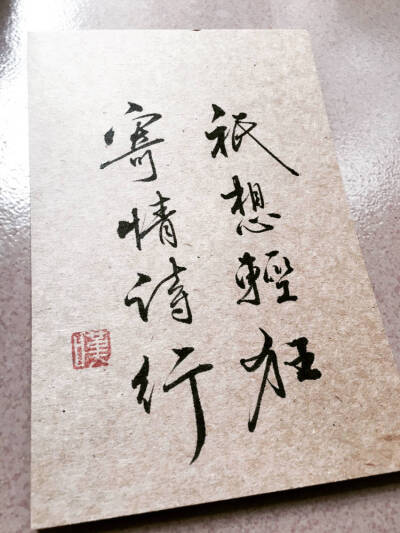 祇想輕狂
寄情詩行